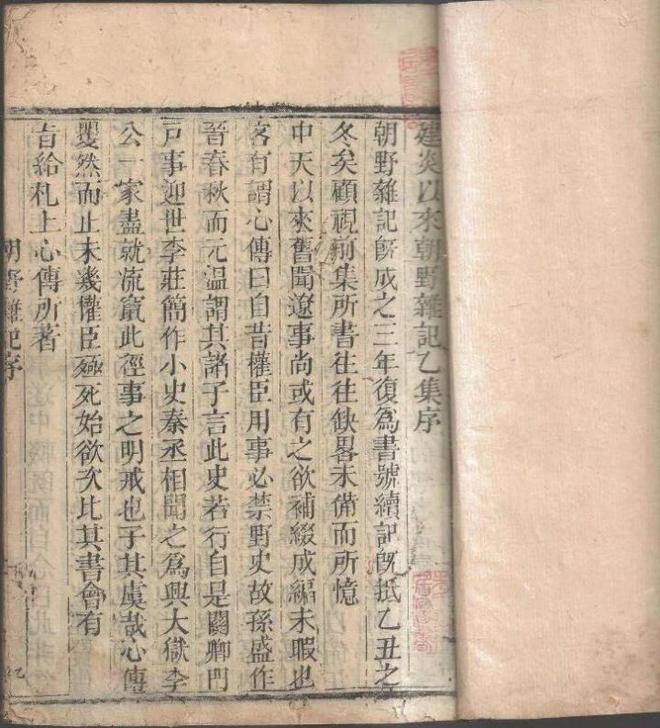 建炎以來朝野雜記乙集序
朝野雜記旣成之三年復爲書號續記旣抵乙丑之
冬矣顧視前集所書往往缺畧未備而所憶
中天以來舊聞遼事尚或有之欲補綴成編未暇也
客有謂心傳曰自昔權臣用事必禁野史故孫盛作
晉春秋而元溫謂其諸子言此史若行自是關卿門
戸事迎世李莊簡作小史秦丞相聞之爲興大獄李
公一家盡就流竄此徑事之明戒也子其虞哉心傳
矍然而止未幾懽臣殛死始欲次比其書會有
旨給札上心傳所著
朝野雜記序